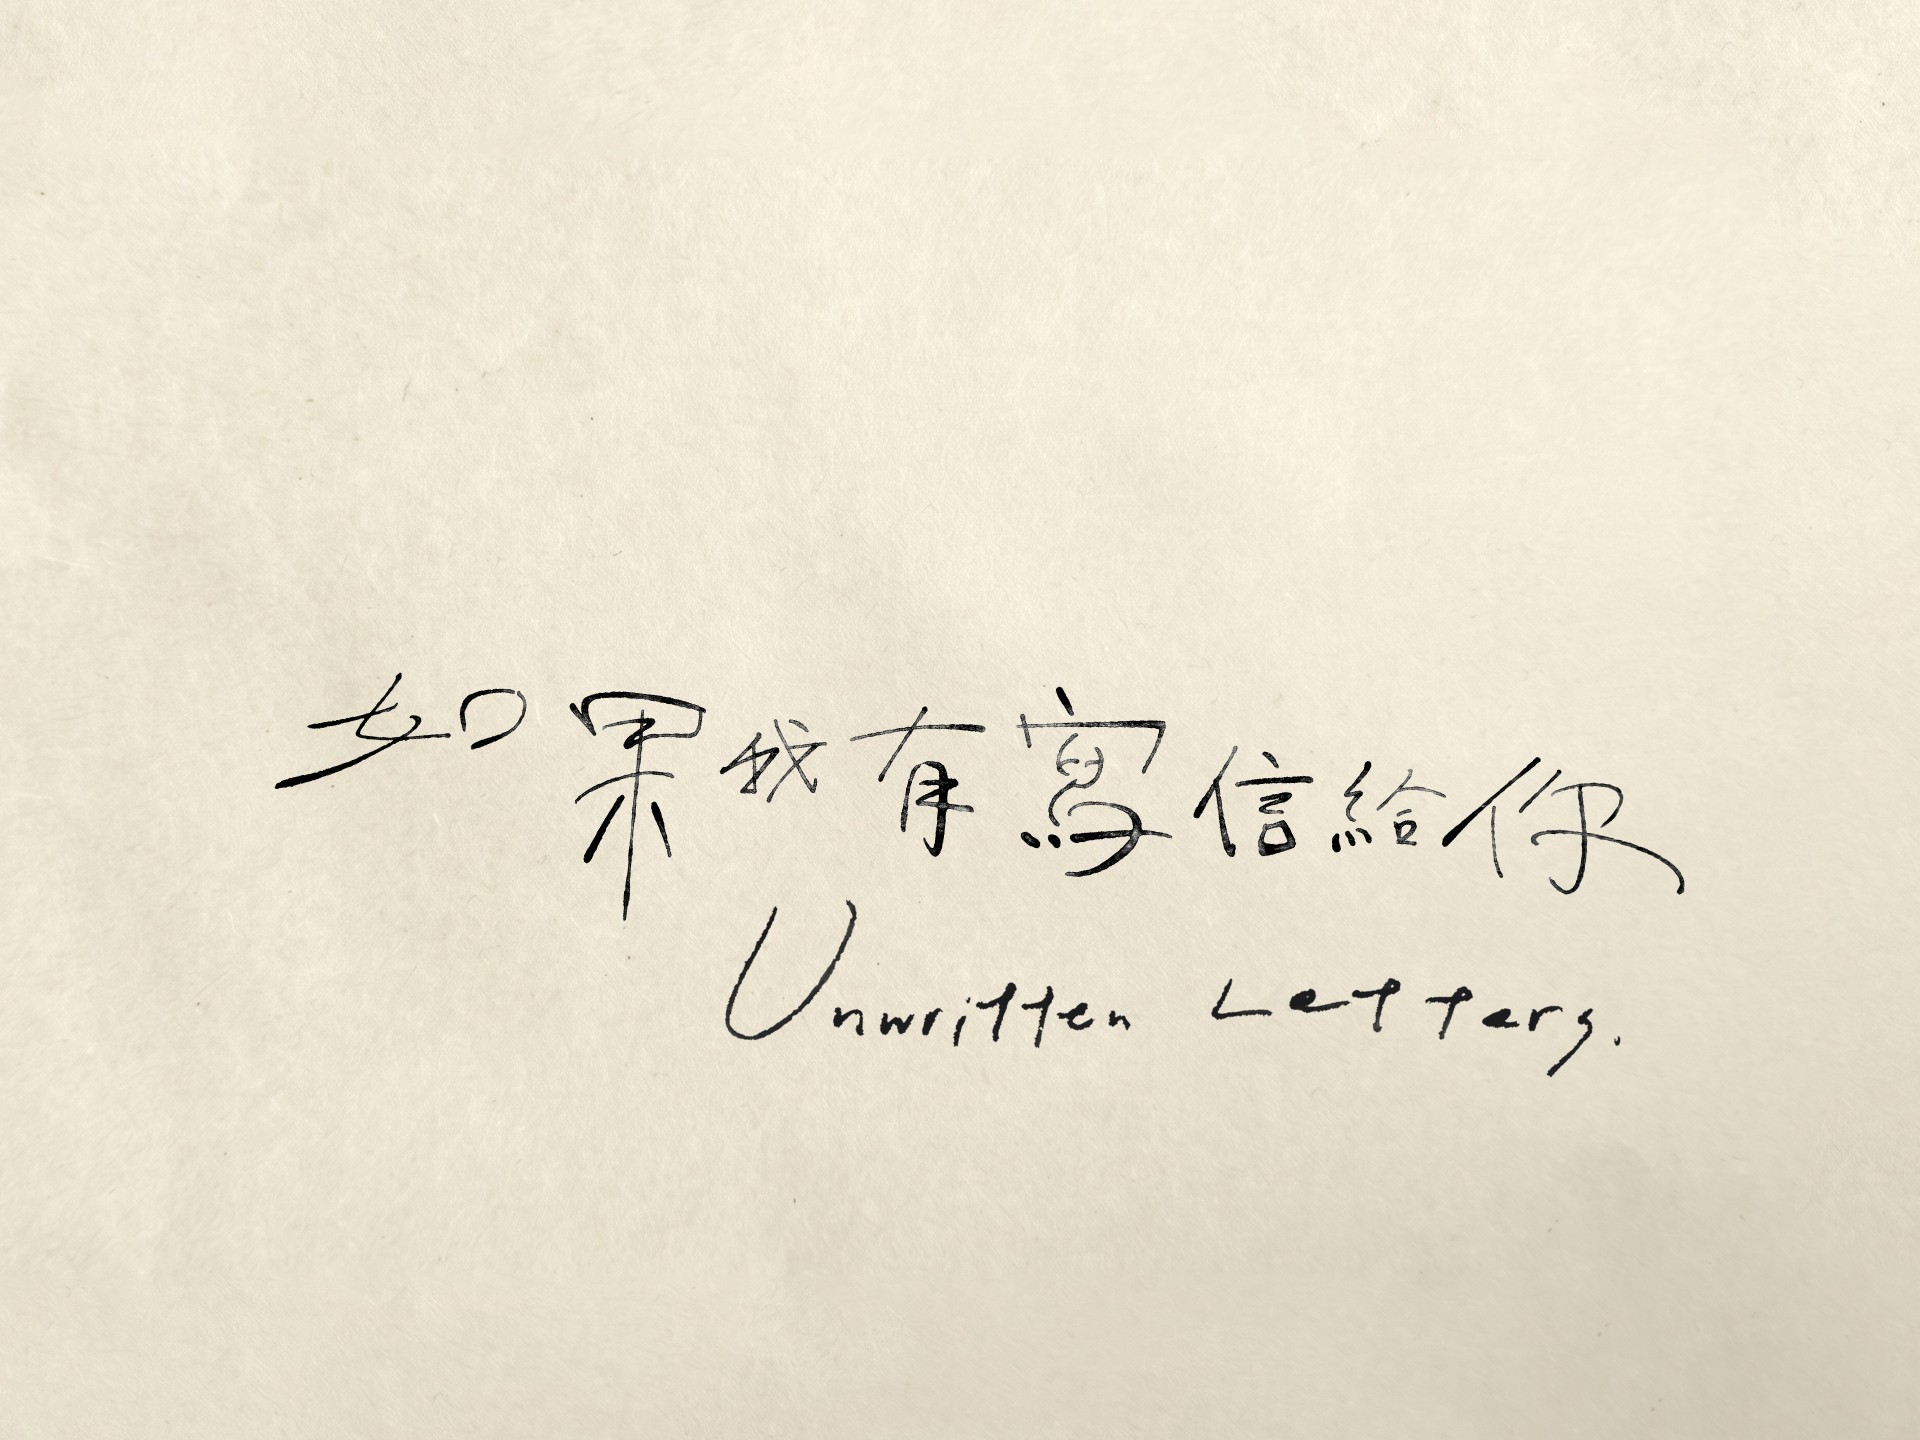 如果我有寫信給你
Unwritten Letters.